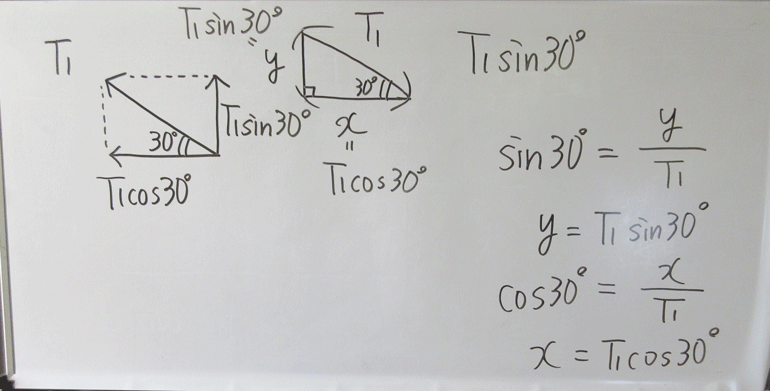 T₁
30°
T₁sin30°
T₁cos30°
T₁sin30°
=
y
T₁
30°
x
=
T₁cos30°
T₁sin30°
sin30° = y/T₁
y = T₁sin30°
cos30° = x/T₁
x = T₁cos30°